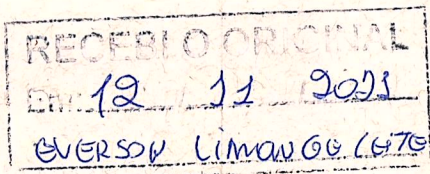 RECEBI O ORIGINAL
Em: 12 / 11 / 2021
EVERSON